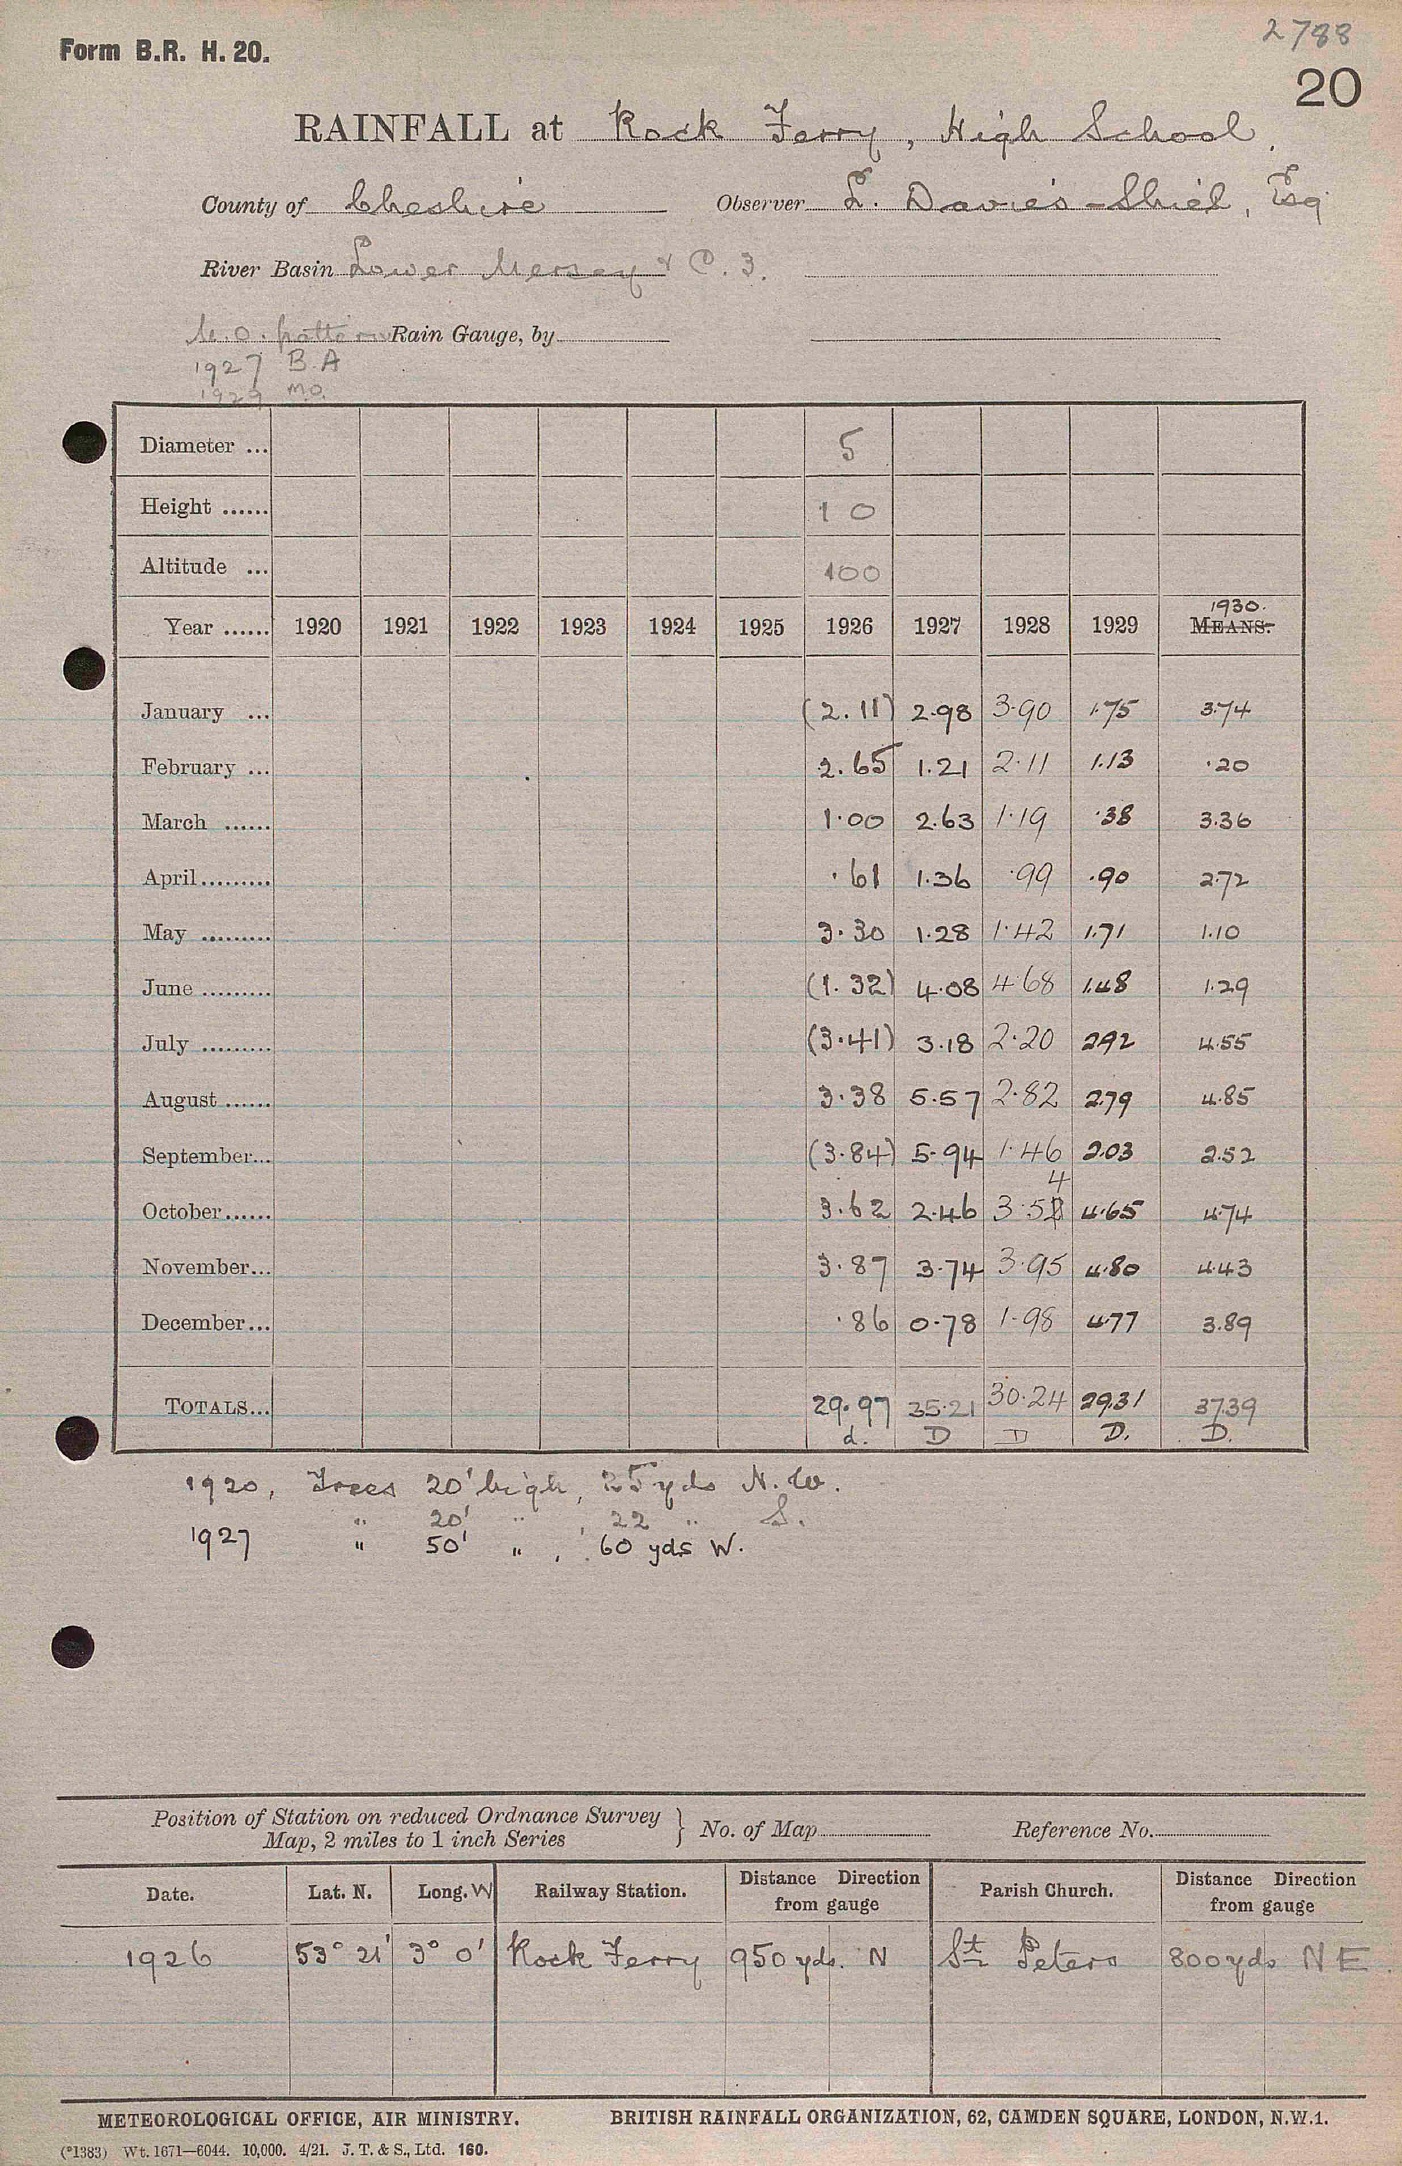 2788
Form B.R. H. 20.
20
RAINFALL at Rock Ferry, High School.
County of Cheshire Observer L. Davies-Shiel, Esq
River Basin Lower Mersey & C. 3.
M.O. pattern Rain Gauge, by
1927 B.A
1929 M.O.
Diameter ... 5
Height ...... 10
Altitude ... 100
1930.
Year ...... 1920 1921 1922 1923 1924 1925 1926 1927 1928 1929 MEANS.
January ... (2.11) 2.98 3.90 1.75 3.74
February ... 2.65 1.21 2.11 1.13 .20
March ...... 1.00 2.63 1.19 .38 3.36
April......... .61 1.36 .99 .90 2.72
May ......... 3.30 1.28 1.42 1.71 1.10
June ......... (1.32) 4.08 4.68 1.48 1.29
July ......... (3.41) 3.18 2.20 2.92 4.55
August ...... 3.38 5.57 2.82 2.79 4.85
September... (3.84) 5.94 1.46 2.03 2.52
4
October...... 3.62 2.46 3.52 4.65 4.74
November... 3.87 3.74 3.95 4.80 4.43
December... .86 0.78 1.98 4.77 3.89
TOTALS... 29.97 35.21 30.24 29.31 37.39
d. D D D. D.
1920, Trees 20' high, 25 yds N.W.
" 20' " , 22 " S.
1927 " 50' " , 60 yds W.
Position of Station on reduced Ordnance Survey
Map, 2 miles to 1 inch Series } No. of Map Reference No.
Date. Lat. N. Long. W Railway Station. Distance Direction from gauge Parish Church. Distance Direction from gauge
1926 53° 21' 3° 0' Rock Ferry 950 yds. N St Peters 800 yds NE.
METEOROLOGICAL OFFICE, AIR MINISTRY. BRITISH RAINFALL ORGANIZATION, 62, CAMDEN SQUARE, LONDON, N.W.1.
(*1383) Wt. 1671—6044. 10,000. 4/21. J. T. & S., Ltd. 160.